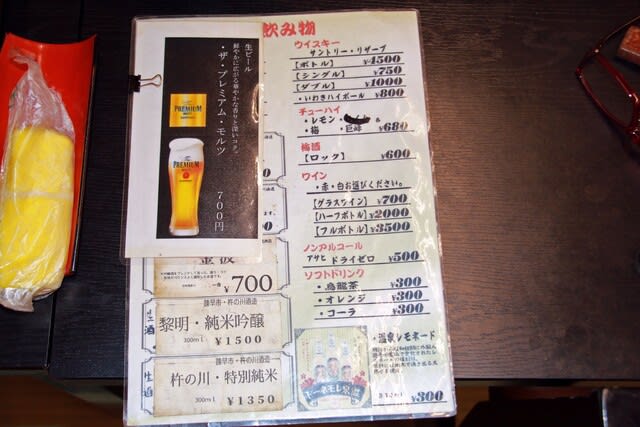 飲み物
生ビール
鮮やかに広がる華やかな香りと深いコク。
・ザ・プレミアム・モルツ
700円
PREMIUM
PREMIUM
¥700
生酒
諫早市・杵の川酒造
黎明・純米吟醸
300ml
¥1500
生酒
諫早市・杵の川酒造
杵の川・特別純米
300ml
¥1350
ウイスキー
サントリー・リザーブ
【ボトル】 ¥4500
【シングル】 ¥750
【ダブル】 ¥1000
・いわきハイボール ¥800
チューハイ
・レモン・
・梅 ・巨峰 ¥680
梅酒
【ロック】 ¥600
ワイン
・赤・白お選びください。
【グラスワイン】 ¥700
【ハーフボトル】 ¥2000
【フルボトル】 ¥3500
ノンアルコール
アサヒ ドライゼロ ¥500
ソフトドリンク
・烏龍茶 ¥300
・オレンジ ¥300
・コーラ ¥300
・温泉レモネード
¥300